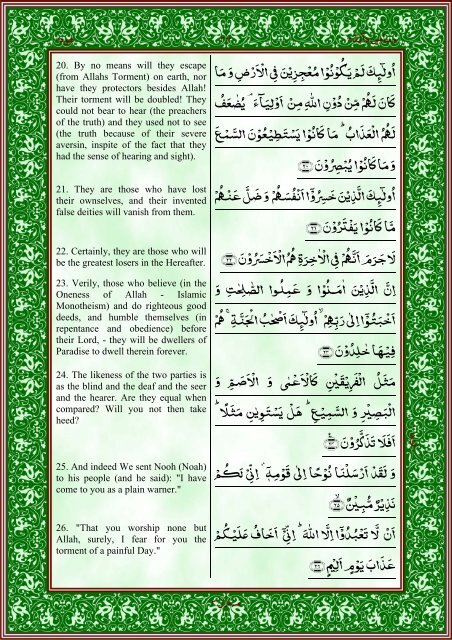 20. By no means will they escape
(from Allahs Torment) on earth, nor
have they protectors besides Allah!
Their torment will be doubled! They
could not bear to hear (the preachers
of the truth) and they used not to see
(the truth because of their severe
aversin, inspite of the fact that they
had the sense of hearing and sight).
اُولٰٓئِكَ لَمْ يَكُوْنُوْا مُعْجِزِيْنَ فِي الْاَرْضِ وَ مَا
كَانَ لَهُمْ مِّنْ دُوْنِ اللّٰهِ مِنْ اَوْلِيَآءَ ۘ يُضٰعَفُ
لَهُمُ الْعَذَابُ ؕ مَا كَانُوْا يَسْتَطِيْعُوْنَ السَّمْعَ
وَ مَا كَانُوْا يُبْصِرُوْنَ ۝۲۰
21. They are those who have lost
their ownselves, and their invented
false deities will vanish from them.
اُولٰٓئِكَ الَّذِيْنَ خَسِرُوْۤا اَنْفُسَهُمْ وَ ضَلَّ عَنْهُمْ
مَّا كَانُوْا يَفْتَرُوْنَ ۝۲۱
22. Certainly, they are those who will
be the greatest losers in the Hereafter.
لَا جَرَمَ اَنَّهُمْ فِي الْاٰخِرَةِ هُمُ الْاَخْسَرُوْنَ ۝۲۲
23. Verily, those who believe (in the
Oneness of Allah - Islamic
Monotheism) and do righteous good
deeds, and humble themselves (in
repentance and obedience) before
their Lord, - they will be dwellers of
Paradise to dwell therein forever.
اِنَّ الَّذِيْنَ اٰمَنُوْا وَ عَمِلُوا الصّٰلِحٰتِ وَ
اَخْبَتُوْۤا اِلٰى رَبِّهِمْ ۙ اُولٰٓئِكَ اَصْحٰبُ الْجَنَّةِ ۚ هُمْ
فِيْهَا خٰلِدُوْنَ ۝۲۳
24. The likeness of the two parties is
as the blind and the deaf and the seer
and the hearer. Are they equal when
compared? Will you not then take
heed?
مَثَلُ الْفَرِيْقَيْنِ كَالْاَعْمٰى وَ الْاَصَمِّ وَ
الْبَصِيْرِ وَ السَّمِيْعِ ؕ هَلْ يَسْتَوِيٰنِ مَثَلًا ؕ
اَفَلَا تَذَكَّرُوْنَ ۝۲۴
25. And indeed We sent Nooh (Noah)
to his people (and he said): "I have
come to you as a plain warner."
وَ لَقَدْ اَرْسَلْنَا نُوْحًا اِلٰى قَوْمِهٖۤ ؗ اِنِّيْ لَكُمْ
نَذِيْرٌ مُّبِيْنٌ ۝۲۵
26. "That you worship none but
Allah, surely, I fear for you the
torment of a painful Day."
اَنْ لَّا تَعْبُدُوْۤا اِلَّا اللّٰهَ ؕ اِنِّيْۤ اَخَافُ عَلَيْكُمْ
عَذَابَ يَوْمٍ اَلِيْمٍ ۝۲۶